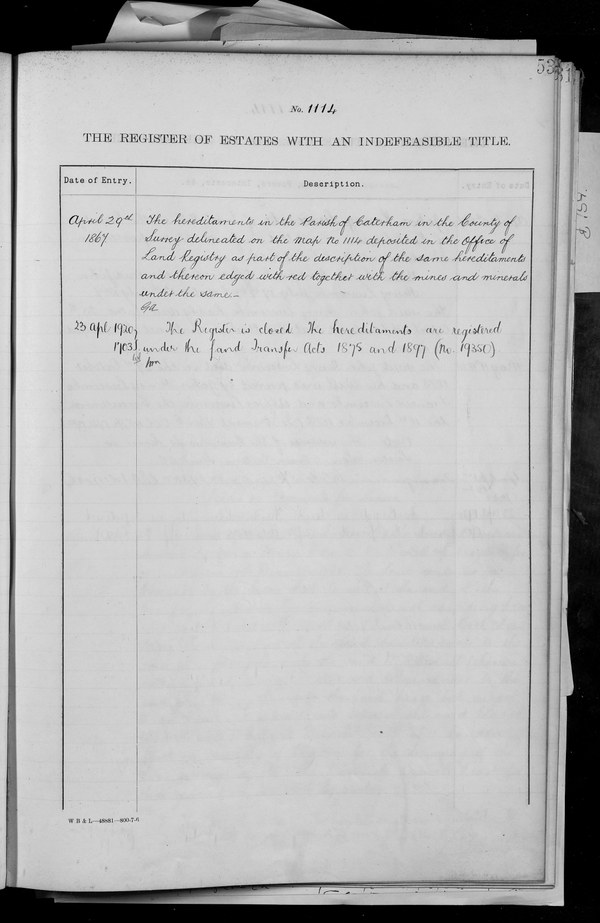 53
31
No. 1114
THE REGISTER OF ESTATES WITH AN INDEFEASIBLE TITLE.
Date of Entry.
Description.
April 29th
1867
The hereditaments in the Parish of Caterham in the County of
Surrey delineated on the Map No 1114 deposited in the Office of
Land Registry as part of the description of the same hereditaments
and thereon edged with red together with the mines and minerals
under the same.—
23 Apl. 1920
17035
The Register is closed The hereditaments are registered
under the Land Transfer Acts 1875 and 1897 (No. 19350)
W B & L—48881—800-7-6